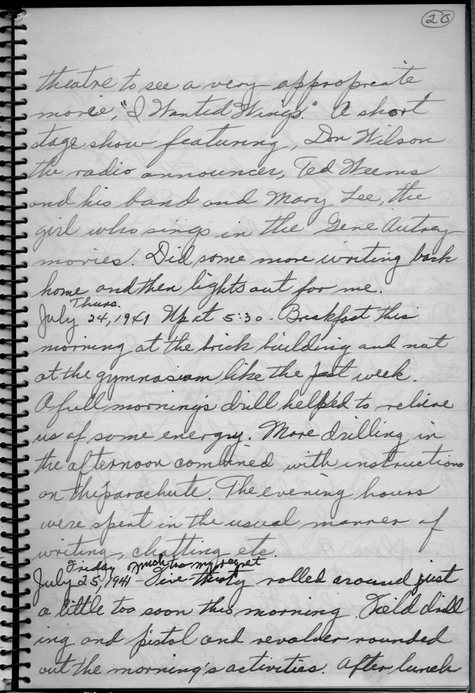 28
theatre to see a very appropriate
movie, "I Wanted Wings." A short
stage show featuring, Don Wilson
the radio announcer, Ted Weems
and his band and Mary Lee, the
girl who sings in the Gene Autrey
movies. Did some more writing back
home and then lights out for me.
Thurs.
July 24, 1941 Up at 5:30. Breakfast this
morning at the brick building and not
at the gymnasium like the past week.
A full morning's drill helped to relieve
us of some energy. More drilling in
the afternoon combined with instructions
on the parachute. The evening hours
were spent in the usual manner of
writing, chatting etc.
Friday much to my regret
July 25, 1941 Five-thirty rolled around just
a little too soon this morning. Field drill
ing and pistol and revolver rounded
out the morning's activities. After lunch